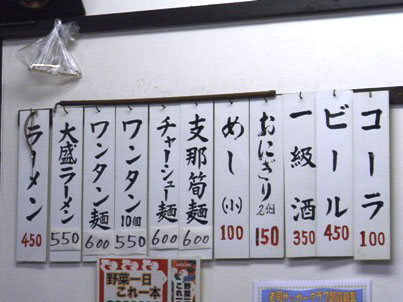 コーラ
100
ビール
450
一級酒
350
おにぎり2個
150
めし(小)
100
支那筍麺
600
チャーシュー麺
600
ワンタン10個
550
ワンタン麺
600
大盛ラーメン
550
ラーメン
450
野菜一日
これ一本